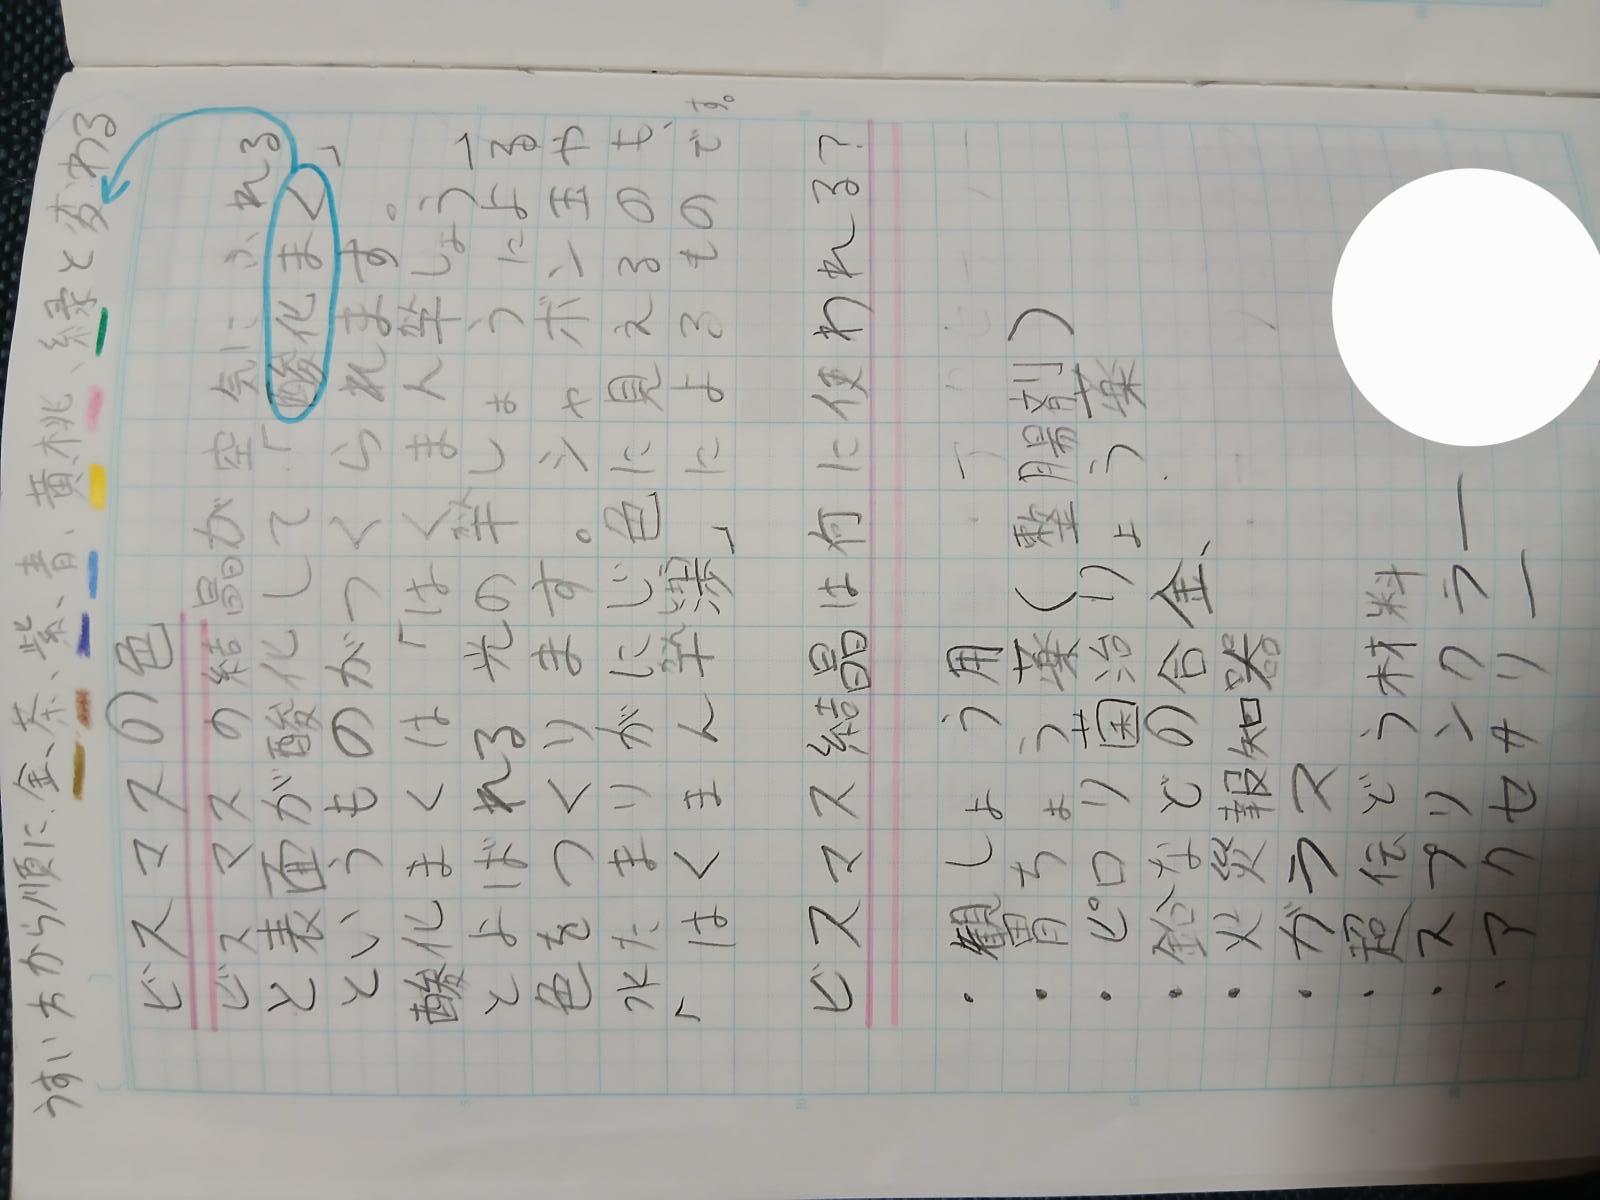 うすい方から順に、金、茶、紫、青、黄、桃、緑と変わる
ビスマスの色
ビスマスの結晶が空気にふれる
と表面が酸化して「酸化まく」
というものがつくられます。
酸化まくは「はくまくかん渉しょう」
とよばれる光のかん渉しょうによる
色をつくります。シャボン玉や
水たまりがにじ色に見えるのも、
「はくまくかん渉」によるものです。
ビスマス結晶は何に使われる?
・観しょう用
・胃ちょう薬(整腸剤)
・ピロリ菌治りょう薬
・鉛などの合金、
・火災報知器
・ガラス
・超伝どう材料
・スプリンクラー
・アクセサリー